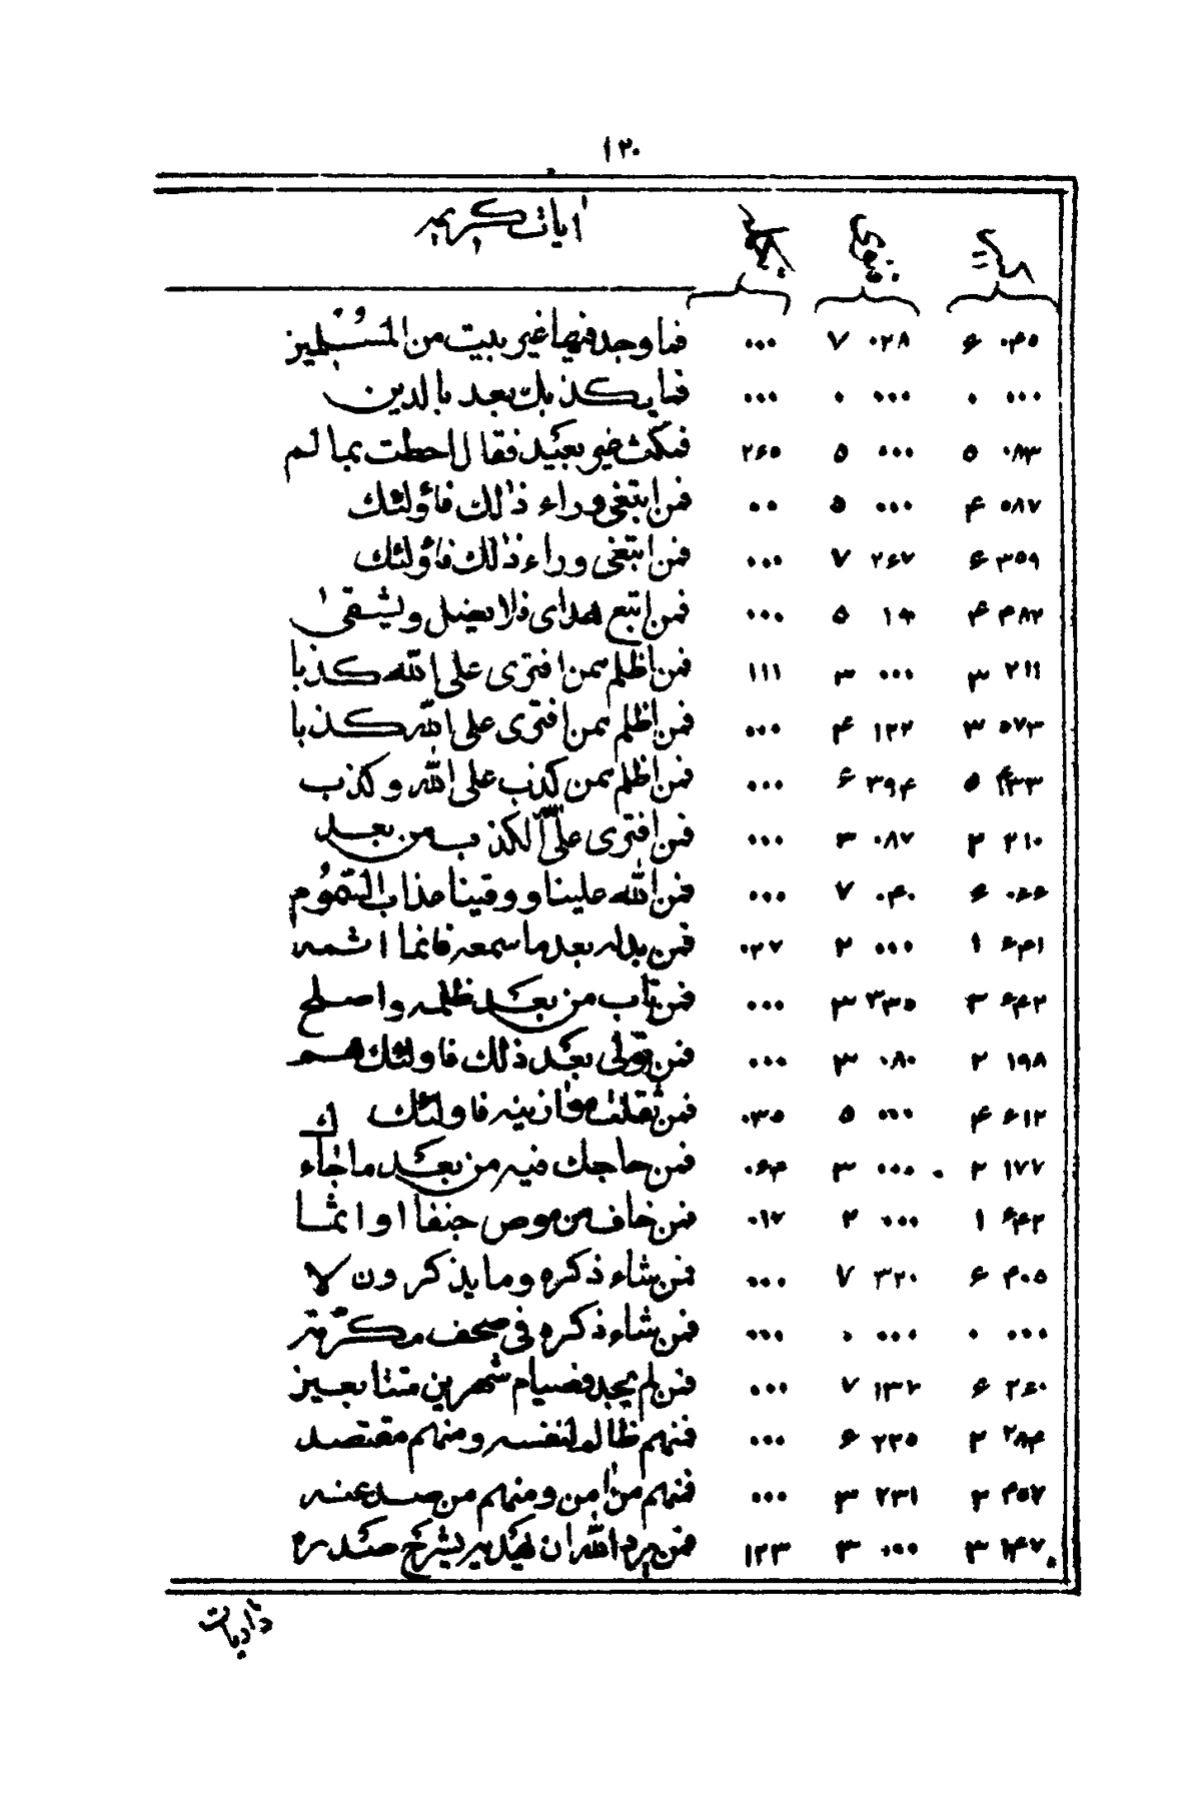 ١٢٠
اٰيات كريمه
٠٤٥ ۶ ٠٢٨ ٧ ٠٠٠ فما وجدنا فيها غير بيت من المسلمين
٠٠٠ ٠ ٠٠٠ ٠ ٠٠٠ فما يكذبك بعد بالدين
٠٨٣ ٥ ٠٠٠ ٥ ٢۶٥ فمكث غير بعيد فقال احطت بما لم
٥٨٧ ۴ ٠٠٠ ٥ ٠٠ فمن ابتغى وراء ذالك فاولئك
٣٥٩ ۶ ٢۶٧ ٧ ٠٠٠ فمن ابتغى وراء ذالك فاولئك
۴٨٢ ۴ ٥ ٠٠٠ فمن اتبع هداى فلا يضل و ليشقى
٢١١ ٣ ٠٠٠ ٣ ١١١ فمن اظلم ممن افترى على الله كذبا
٥٧٣ ٣ ١٢٢ ۴ ٠٠٠ فمن اظلم ممن افترى على الله كذبا
۴٣٣ ٥ ٣٩۴ ۶ ٠٠٠ فمن اظلم ممن كذب على الله وكذب
٢١٠ ٢ ٠٨٧ ٣ ٠٠٠ فمن افترى على الله الكذب من بعد
٠۶۶ ۶ ٠۴٠ ٧ ٠٠٠ فمن الله علينا ووقينا عذاب السموم
۶۴١ ١ ٠٠٠ ٢ ٠٢٧ فمن بدله بعد ما سمعه فانما اثمه
۶۴٢ ٣ ٣٣٥ ٣ ٠٠٠ فمن تاب من بعد ظلمه واصلح
١٩٨ ٢ ٠٨٠ ٣ ٠٠٠ فمن تولى بعد ذلك فاولئك هم
۶١٢ ۴ ٠٠٠ ٥ ٠٣٥ فمن ثقلت موازينه فاولئك
١٧٧ ٢ ٠٠٠ ٣ ٠۶۴ فمن حاجك فيه من بعد ما جاءك
۶۴٢ ١ ٠٠٠ ٢ ٠١٧ فمن خاف من موص جنفا او اثما
۴٠٥ ۶ ٣٢٠ ٧ ٠٠٠ فمن شاء ذكره وما يذكرون لا
٠٠٠ ٠ ٠٠٠ ٠ ٠٠٠ فمن شاء ذكره فى صحف مكرمة
٢۶٠ ۶ ١٣٢ ٧ ٠٠٠ فمن لم يجد فصيام شهرين متتابعين
٢٨۴ ٢ ٢٢٥ ۶ ٠٠٠ فمنهم ظالم لنفسه ومنهم مقتصد
۴٥٧ ٢ ٢٣١ ٣ ٠٠٠ فمنهم من امن ومنهم من صد عنه
١۴٧ ٣ ٠٠٠ ٣ ١٢٣ فمن يرد الله ان يهديه يشرح صدره